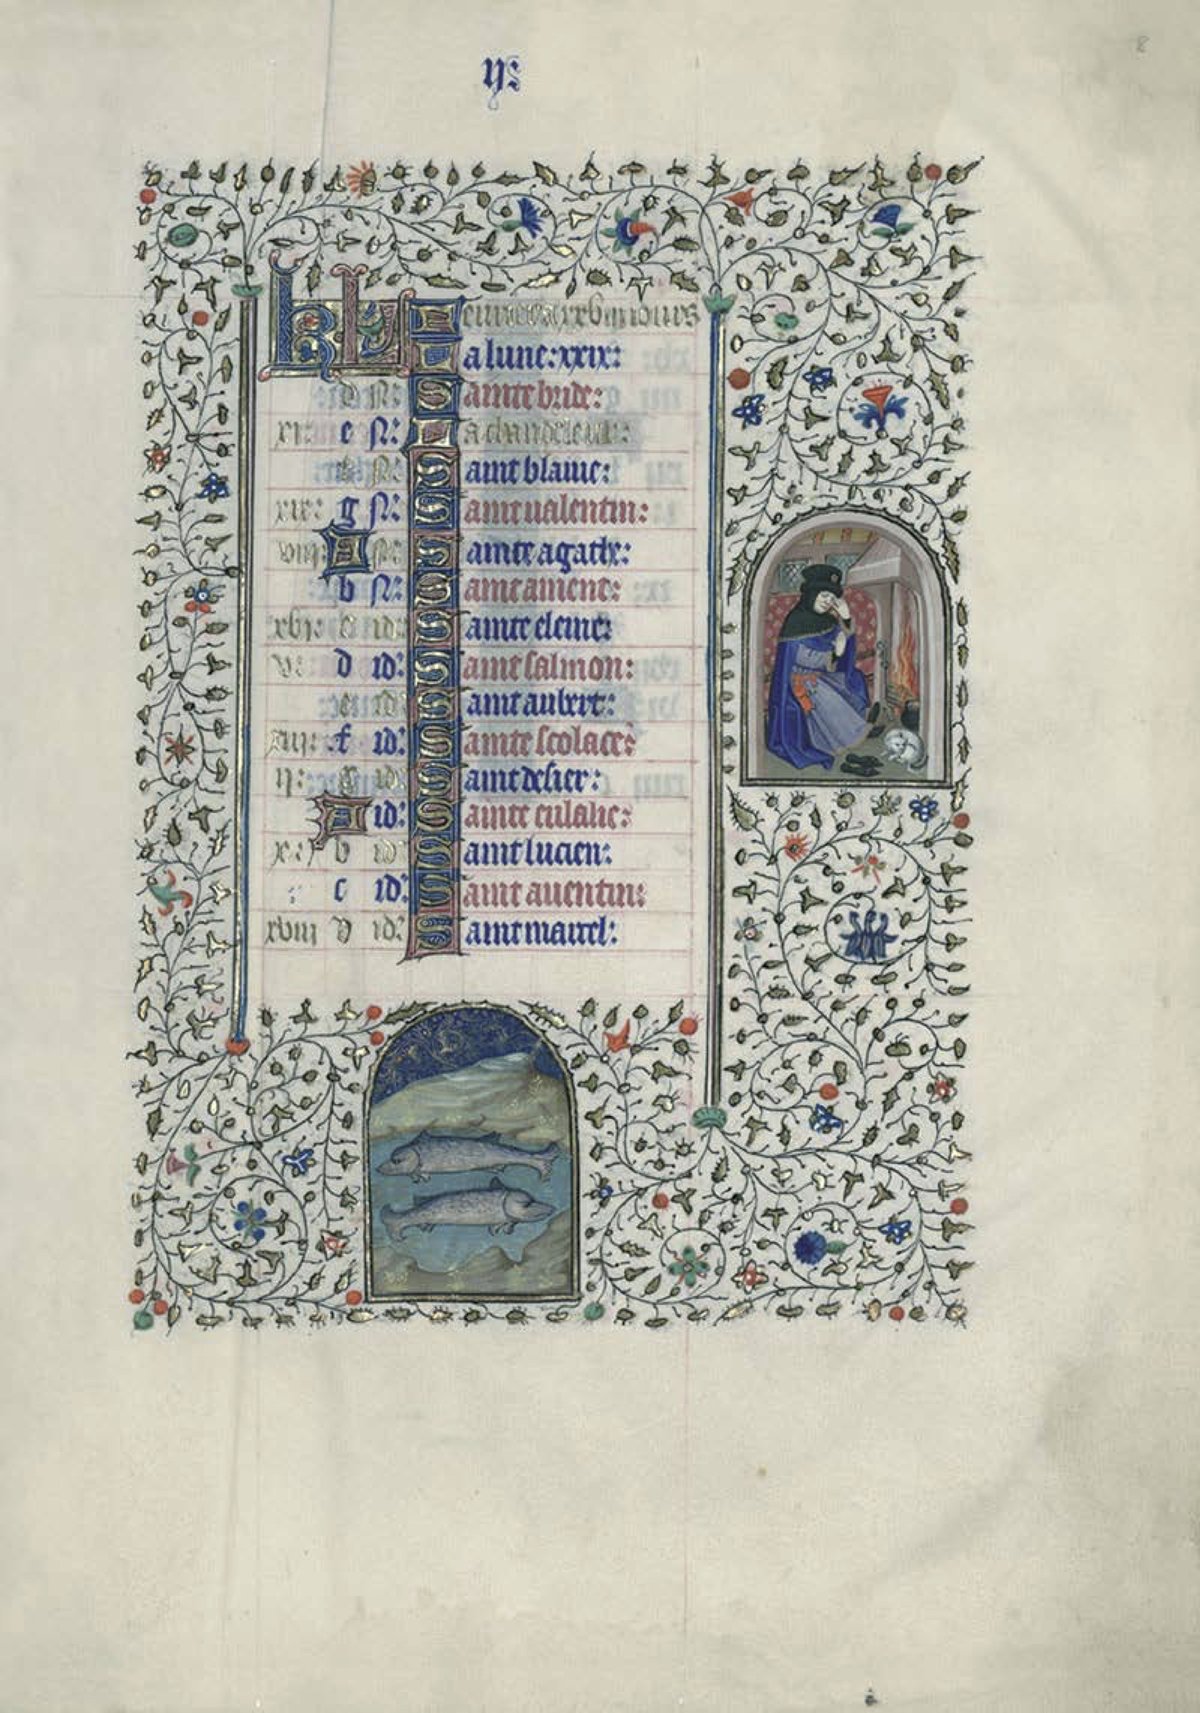 8
KL
a lune: xxix:
d N:
Sainte bride:
xi: e N:
La chandeleur:
f N:
Saint blaiue:
xix: g N:
Saint ualentin:
viii: A N:
Sainte agathe:
b N:
Saint ament:
xvi: c id:
Sainte eleine:
v: d id:
Saint salmon:
e id:
Saint aubert:
xiii: f id:
Sainte scolace:
ii: g id:
Saint desier:
A id:
Sainte eulalie:
x: b id:
Saint lucien:
c id:
Saint auentin:
xviii D id:
Saint marcel: